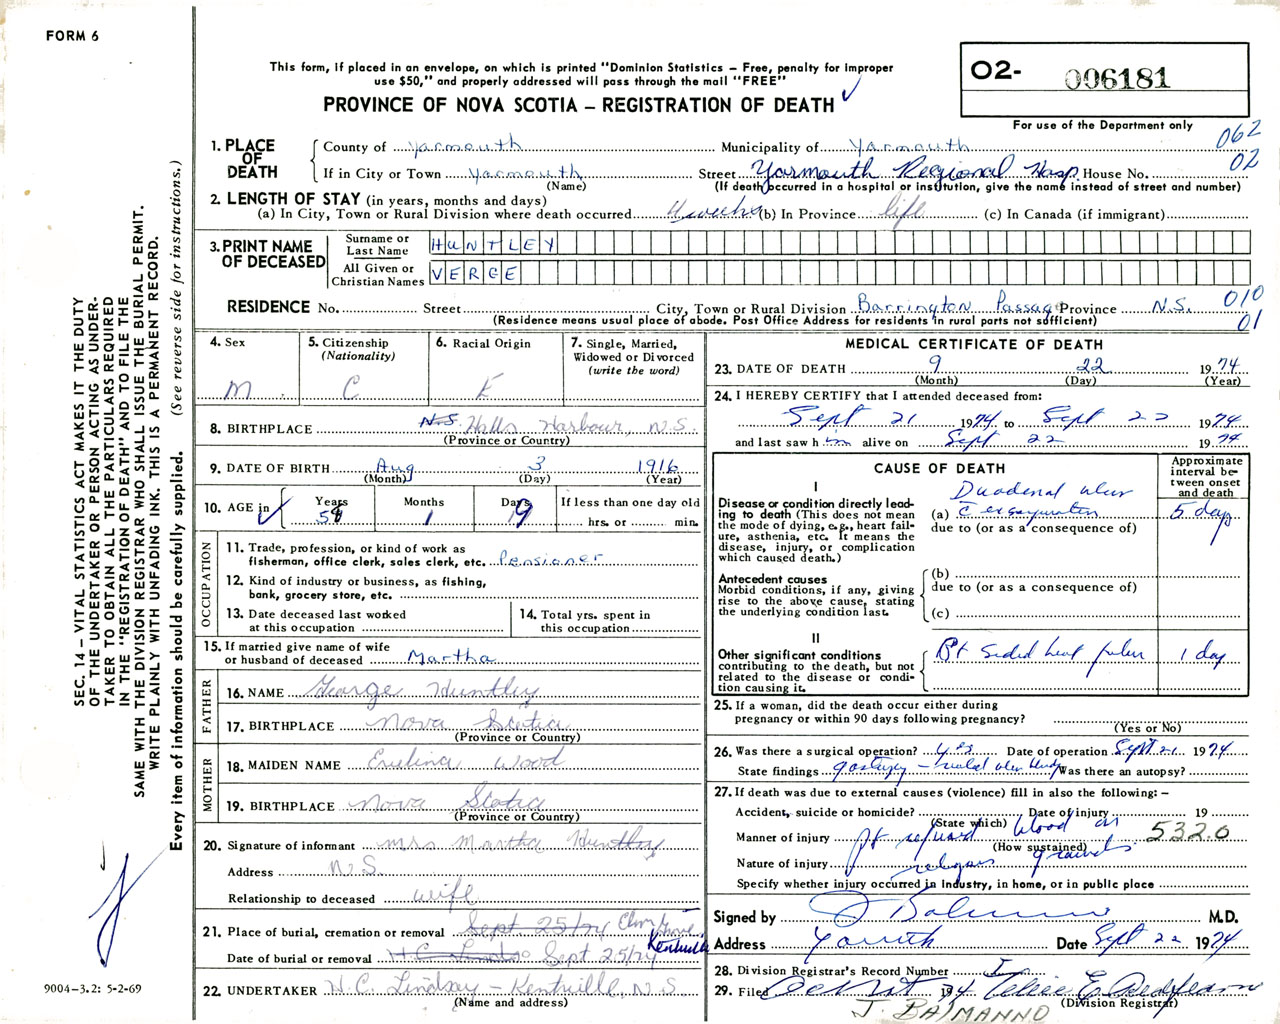 FORM 6
This form, if placed in an envelope, on which is printed "Dominion Statistics – Free, penalty for improper
use $50," and properly addressed will pass through the mail "FREE"
PROVINCE OF NOVA SCOTIA – REGISTRATION OF DEATH
O2- 006181
For use of the Department only
062
02
1. PLACE OF DEATH
County of Yarmouth Municipality of Yarmouth
If in City or Town Yarmouth Street Yarmouth Regional Hosp House No.
(Name) (If death occurred in a hospital or institution, give the name instead of street and number)
2. LENGTH OF STAY (in years, months and days)
(a) In City, Town or Rural Division where death occurred weeks (b) In Province life (c) In Canada (if immigrant)
3. PRINT NAME OF DECEASED
Surname or Last Name HUNTLEY
All Given or Christian Names VERGE
RESIDENCE No. Street City, Town or Rural Division Barrington Passage Province N.S. 010
(Residence means usual place of abode. Post Office Address for residents in rural parts not sufficient) 01
4. Sex M
5. Citizenship (Nationality) C
6. Racial Origin E
7. Single, Married, Widowed or Divorced (write the word)
8. BIRTHPLACE N.S. Halls Harbour, N.S.
(Province or Country)
9. DATE OF BIRTH Aug 3 1916
(Month) (Day) (Year)
10. AGE in Years 58 Months 1 Days 19 If less than one day old
hrs. or min.
OCCUPATION
11. Trade, profession, or kind of work as
fisherman, office clerk, sales clerk, etc. Pensioner
12. Kind of industry or business, as fishing,
bank, grocery store, etc.
13. Date deceased last worked
at this occupation
14. Total yrs. spent in
this occupation
15. If married give name of wife
or husband of deceased Martha
FATHER
16. NAME George Huntley
17. BIRTHPLACE Nova Scotia
(Province or Country)
MOTHER
18. MAIDEN NAME Wood
19. BIRTHPLACE Nova Scotia
(Province or Country)
20. Signature of informant Mrs Martha Huntley
Address N.S.
Relationship to deceased wife
21. Place of burial, cremation or removal Sept 25/74 Elm Grove,
Kentville
Date of burial or removal H.C. Lindsay Sept. 25/74
22. UNDERTAKER H.C. Lindsay – Kentville, N.S.
(Name and address)
MEDICAL CERTIFICATE OF DEATH
23. DATE OF DEATH 9 22 1974
(Month) (Day) (Year)
24. I HEREBY CERTIFY that I attended deceased from:
Sept 21 1974 to Sept 22 1974
and last saw him alive on Sept 22 1974
CAUSE OF DEATH
Approximate interval between onset and death
I
Disease or condition directly leading to death (This does not
mean the mode of dying, e.g., heart failure, asthenia, etc. It means the
disease, injury, or complication
which caused death.)
Duodenal ulcer
(a) 5 days
due to (or as a consequence of)
Antecedent causes
Morbid conditions, if any, giving
rise to the above cause, stating
the underlying condition last.
(b)
due to (or as a consequence of)
(c)
II
Other significant conditions
contributing to the death, but not
related to the disease or condition causing it.
Rt sided heart failure 1 day
25. If a woman, did the death occur either during
pregnancy or within 90 days following pregnancy?
(Yes or No)
26. Was there a surgical operation? yes Date of operation Sept 21 1974
State findings ulcer Was there an autopsy?
27. If death was due to external causes (violence) fill in also the following: –
Accident, suicide or homicide? Date of injury 19
(State which)
Manner of injury pt refused blood on 532.0
(How sustained)
Nature of injury religious grounds
Specify whether injury occurred in Industry, in home, or in public place
Signed by M.D.
Address Yarmouth Date Sept 22 1974
28. Division Registrar's Record Number
29. Filed 1974
(Division Registrar)
J. BALMANNO
SEC. 14 – VITAL STATISTICS ACT MAKES IT THE DUTY
OF THE UNDERTAKER OR PERSON ACTING AS UNDER-
TAKER TO OBTAIN ALL THE PARTICULARS REQUIRED
IN THE "REGISTRATION OF DEATH" AND TO FILE THE
SAME WITH THE DIVISION REGISTRAR WHO SHALL ISSUE THE BURIAL PERMIT.
WRITE PLAINLY WITH UNFADING INK. THIS IS A PERMANENT RECORD.
Every item of information should be carefully supplied. (See reverse side for instructions.)
9004–3.2: 5-2-69